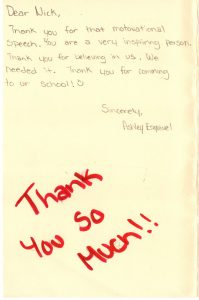 Dear Nick,
Thank you for that motovational
speech. You are a very inspiring person.
Thank you for believing in us. We
needed it. Thank you for comming
to ur school! ☺
Sincerely,
Ashley Esquivel
Thank
You So
Much!!